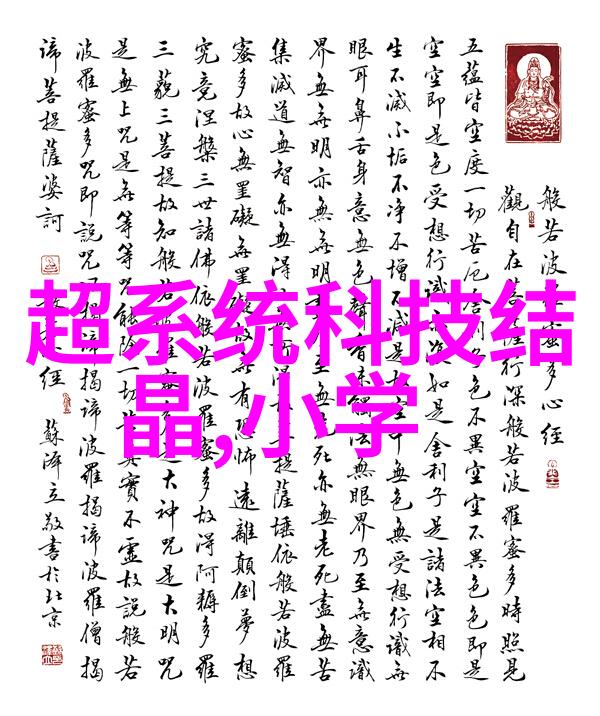 超系统科技结
晶,小学
般若波蜜多心經
觀自在菩薩行深般若波羅蜜多時照見
五蘊皆空度一切苦厄舍利子色不異空空不異色色即是
空空即是色受想行識亦如是舍利子是諸法空相不
生不滅不垢不净不增不減是故空中無色無受想行識無
眼耳鼻舌身意無色聲香味觸法無眼界乃至無意識
界無無明亦無無明至無老死亦無老死盡無苦
集滅道無智亦無得無所得菩提薩埵依般若波羅
蜜多故心無罣礙無罣礙故無有恐怖遠離顛倒夢想
究竟涅槃三世諸佛依般若波羅蜜多故得阿耨多羅
三藐三菩提故知般若羅蜜多是大神咒是大明咒
是無上咒是無等等咒能除一切苦真實不虛故說般若
波羅蜜多咒即說咒曰揭諦揭諦波羅揭諦波羅僧揭
諦菩提薩婆訶
心經
蘇澤立敬書於北京